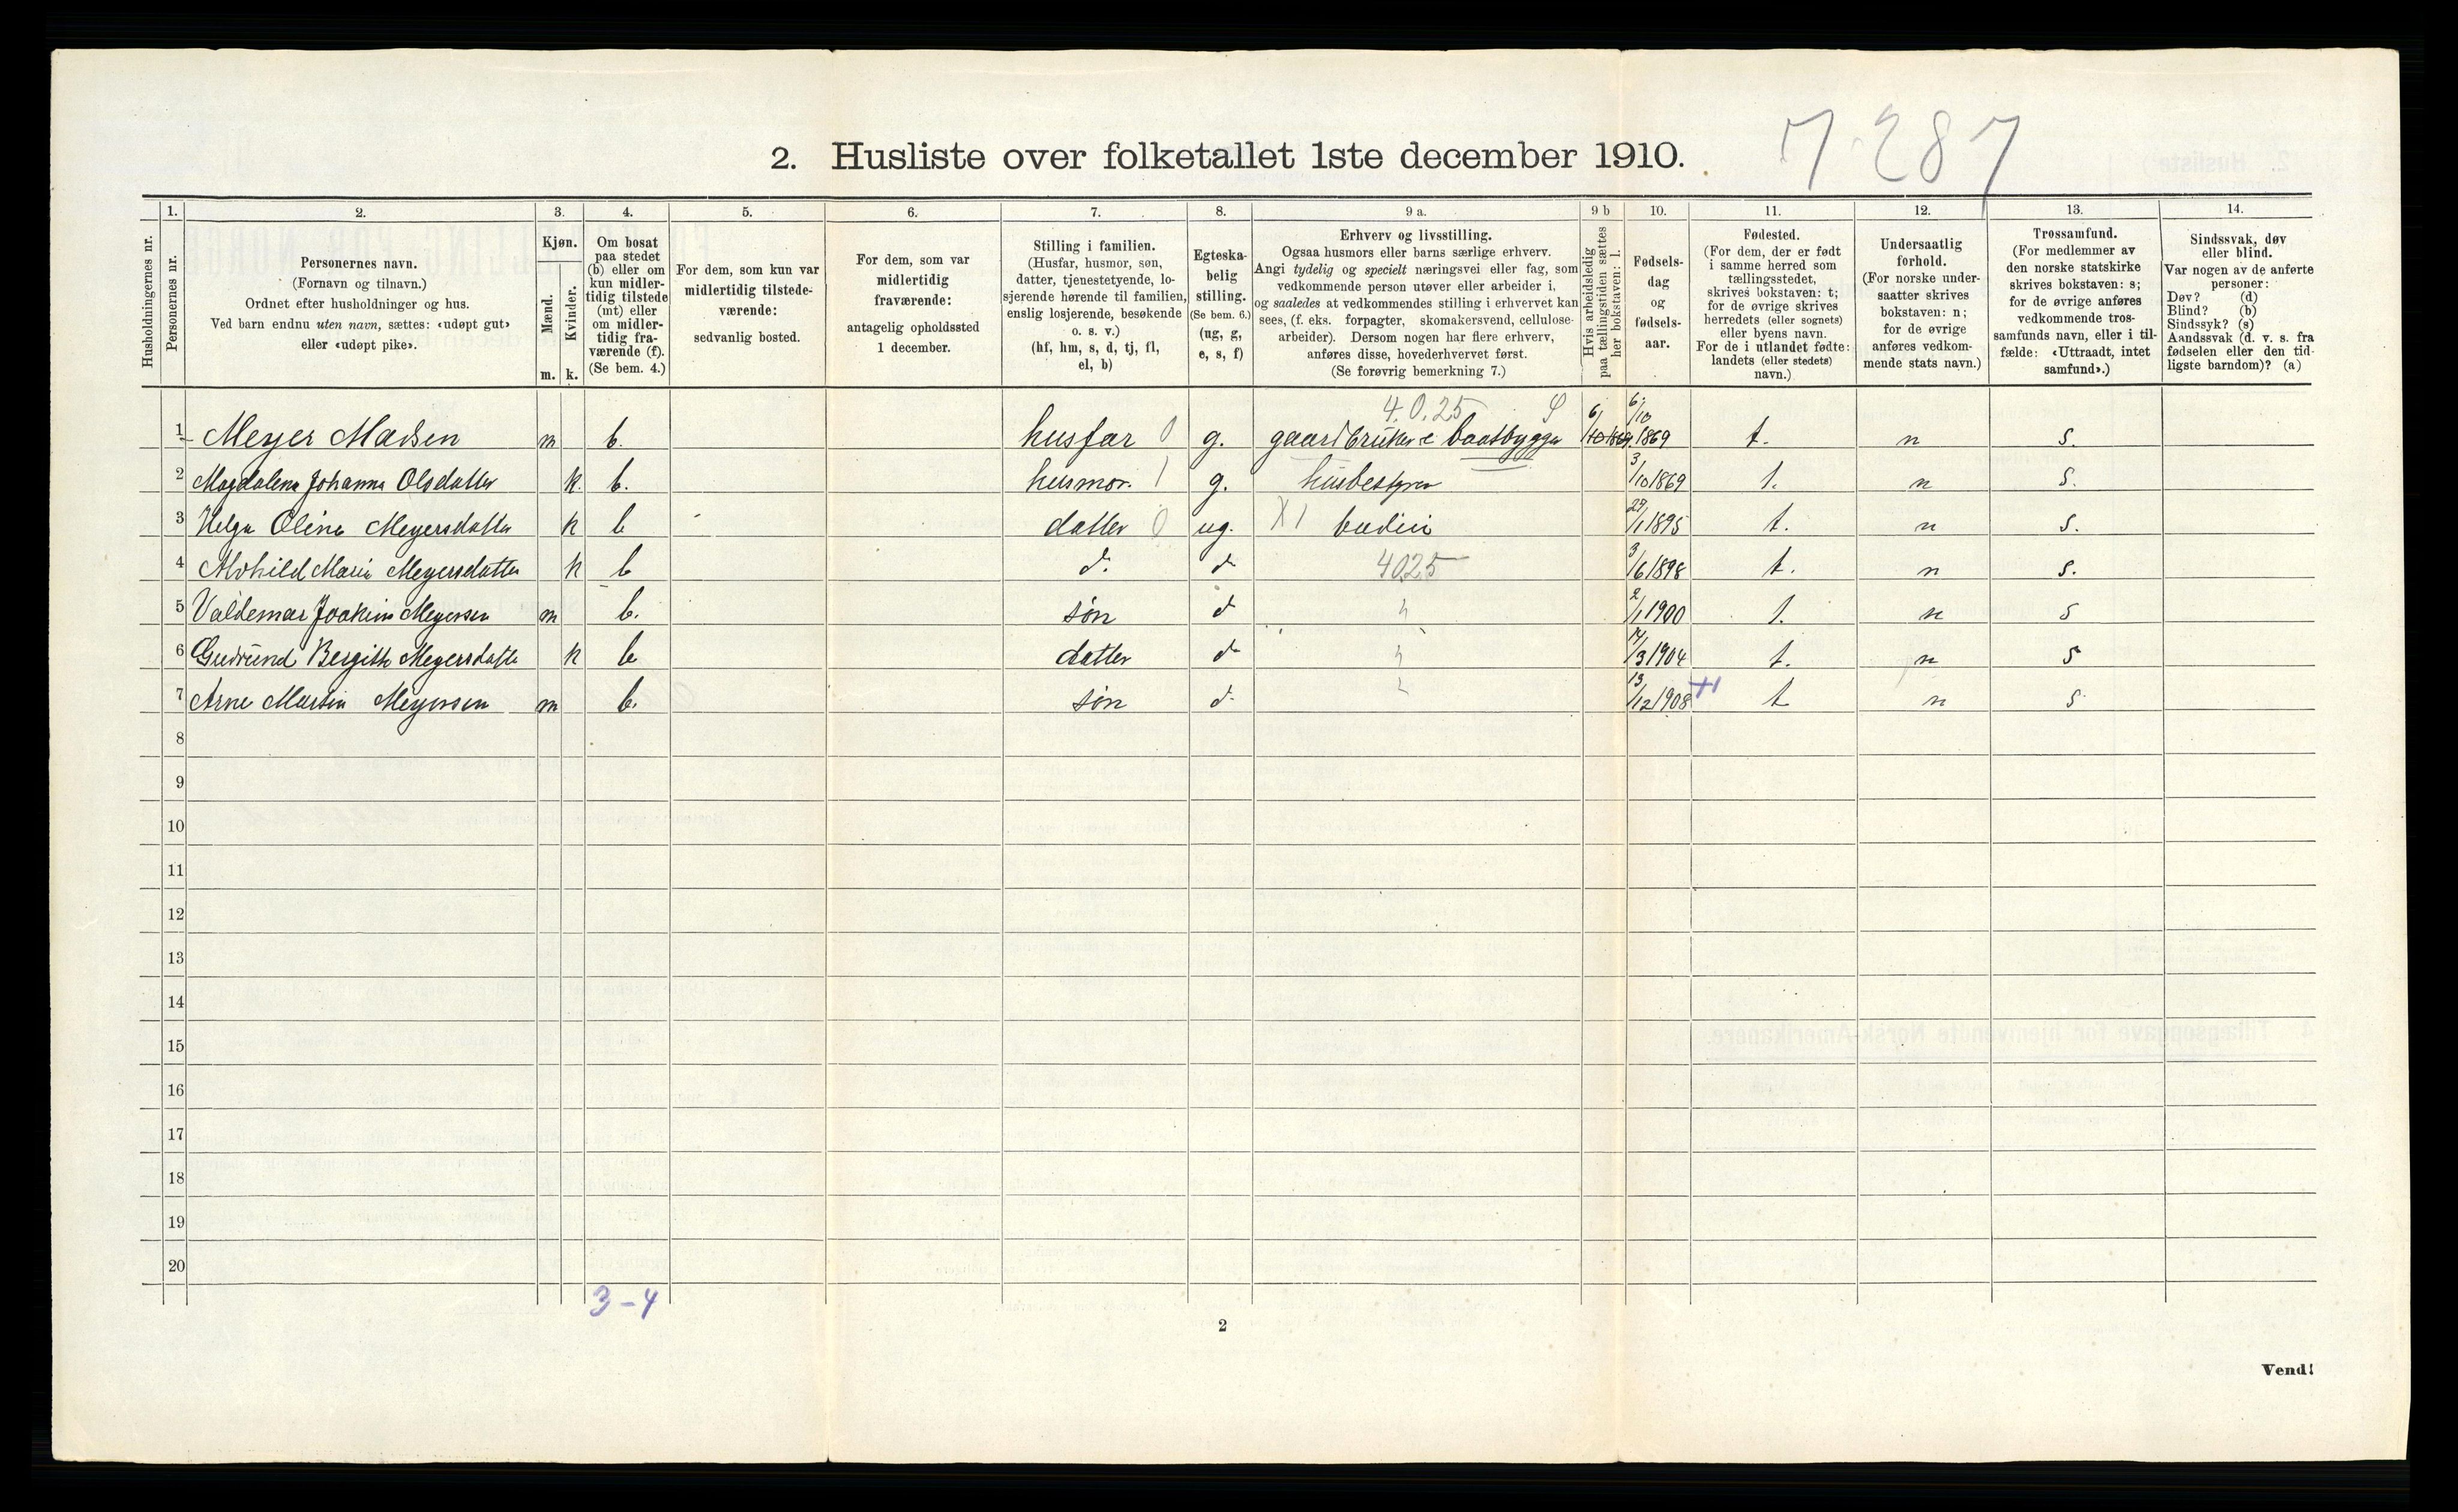 2. Husliste over folketallet 1ste december 1910.
7-287
Husholdningernes nr.
1.
Personernes nr.
2.
Personernes navn.
(Fornavn og tilnavn.)
Ordnet efter husholdninger og hus.
Ved barn endnu uten navn, sættes: «udøpt gut»
eller «udøpt pike».
3.
Kjøn.
Mænd.
Kvinder.
m. k.
4.
Om bosat
paa stedet
(b) eller om
kun midler-
tidig tilstede
(mt) eller
om midler-
tidig fra-
værende (f).
(Se bem. 4.)
5.
For dem, som kun var
midlertidig tilstede-
værende:
sedvanlig bosted.
6.
For dem, som var
midlertidig
fraværende:
antagelig opholdssted
1 december.
7.
Stilling i familien.
(Husfar, husmor, søn,
datter, tjenestetyende, lo-
sjerende hørende til familien,
enslig losjerende, besøkende
o. s. v.)
(hf, hm, s, d, tj, fl,
el, b)
8.
Egteska-
belig
stilling.
(Se bem. 6.)
(ug, g,
e, s, f)
9 a.
Erhverv og livsstilling.
Ogsaa husmors eller barns særlige erhverv.
Angi tydelig og specielt næringsvei eller fag, som
vedkommende person utøver eller arbeider i,
og saaledes at vedkommendes stilling i erhvervet kan
sees, (f. eks. forpagter, skomakersvend, cellulose-
arbeider). Dersom nogen har flere erhverv,
anføres disse, hovederhvervet først.
(Se forøvrig bemerkning 7.)
9 b
Hvis arbeidsledig
paa tællingstiden sættes
her bokstaven: l.
10.
Fødsels-
dag
og
fødsels-
aar.
11.
Fødested.
(For dem, der er født
i samme herred som
tællingsstedet,
skrives bokstaven: t;
for de øvrige skrives
herredets (eller sognets)
eller byens navn.
For de i utlandet fødte:
landets (eller stedets)
navn.)
12.
Undersaatlig
forhold.
(For norske under-
saatter skrives
bokstaven: n;
for de øvrige
anføres vedkom-
mende stats navn.)
13.
Trossamfund.
(For medlemmer av
den norske statskirke
skrives bokstaven: s;
for de øvrige anføres
vedkommende tros-
samfunds navn, eller i til-
fælde: «Uttraadt, intet
samfund».)
14.
Sindssvak, døv
eller blind.
Var nogen av de anførte
personer:
Døv? (d)
Blind? (b)
Sindssyk? (s)
Aandssvak (d. v. s. fra
fødselen eller den tid-
ligste barndom)? (a)
4.0.25
1 Meyer Madsen m b. husfar 0 g. gaardbruker e baatbygger 6/10 1869 t. n s.
2 Magdalena Johanna Olsdatter k. b. husmor. 1 g. husbestyrer 3/10 1869 t. n s.
3 Helga Oline Meyersdatter k b datter 0 ug. X1 budeie 29/1 1895 t. n s.
4 Alvhild Marie Meyersdatter k b d. d 4025 9/6 1898 t. n s.
5 Valdemar Joakim Meyersen m b. søn d 2/1 1900 t. n s
6 Gudrund Bergitte Meyersdatter k b datter d 14/3 1904 t. n s
7 Arne Martin Meyersen m b. søn d 13/12 1908 t n s
8
9
10
11
12
13
14
15
16
17
18
19
20
3-4
2
Vend!